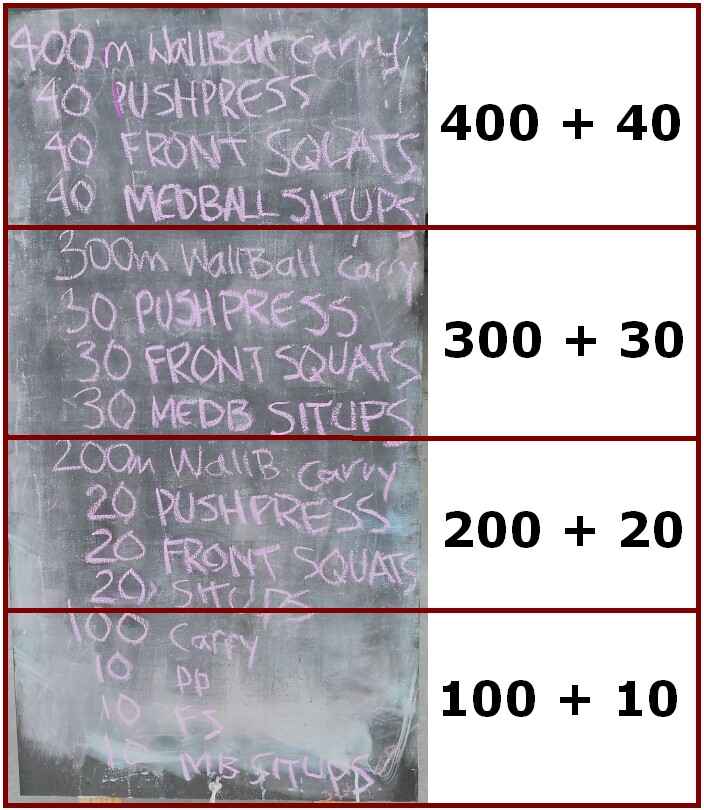 400m WallBall carry
40 PUSHPRESS
40 FRONT SQUATS
40 MEDBALL SITUPS
400 + 40
300m WallBall carry
30 PUSHPRESS
30 FRONT SQUATS
30 MEDB SITUPS
300 + 30
200m WallB carry
20 PUSHPRESS
20 FRONT SQUATS
20 SITUPS
200 + 20
100 carry
10 PP
10 FS
10 MB SITUPS
100 + 10